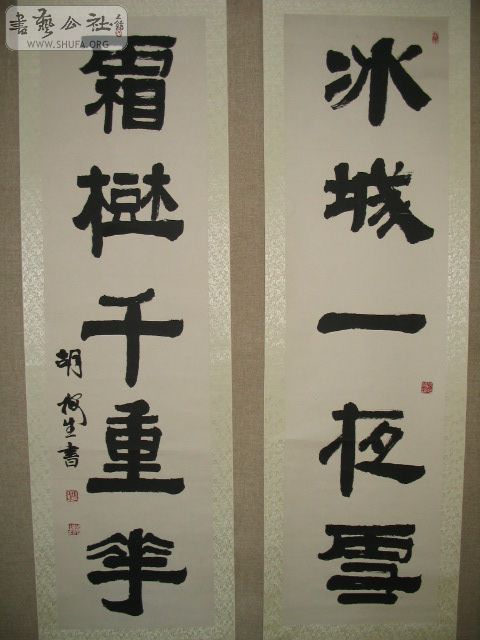 書藝公社
WWW.SHUFA.ORG
冰城一夜雪
霜樾千重華
胡生書